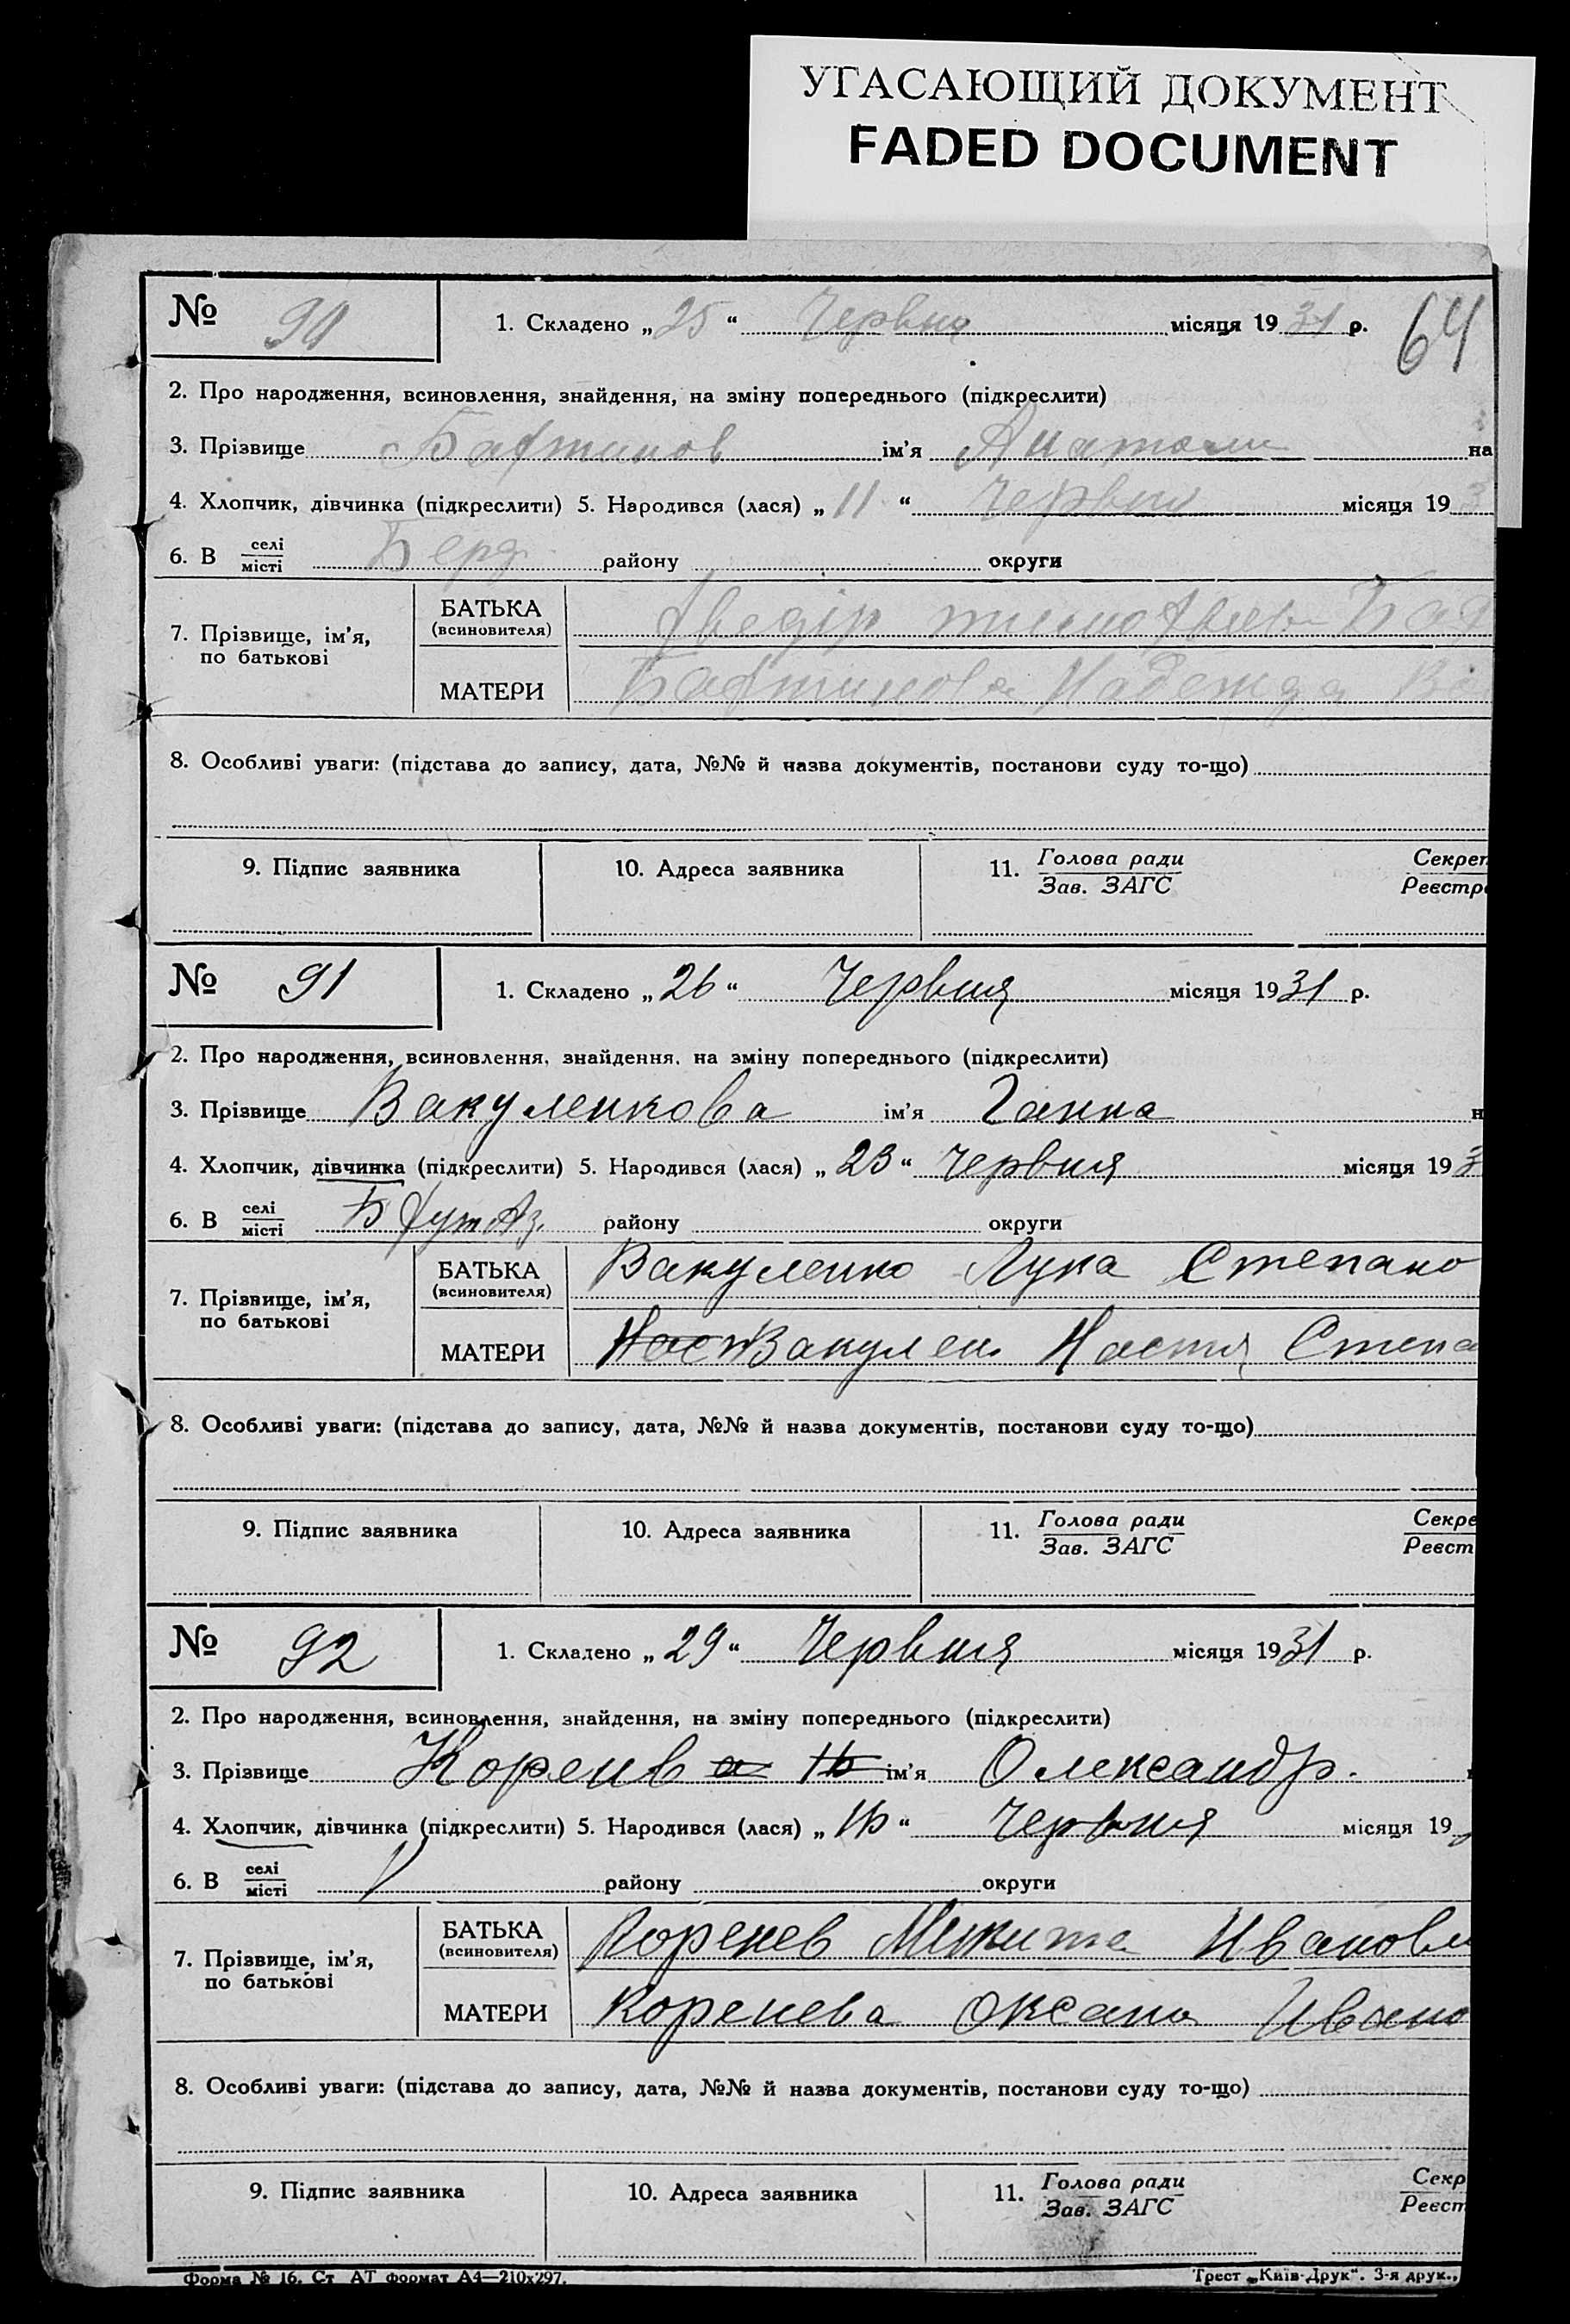 УГАСАЮЩИЙ ДОКУМЕНТ
FADED DOCUMENT
64
№ 90 1. Складено „25“ Червня місяця 1931 р.
2. Про народження, всиновлення, знайдення, на зміну попереднього (підкреслити)
3. Прізвище Бафтинов ім’я Анатоли на
4. Хлопчик, дівчинка (підкреслити) 5. Народився (лася) „11“ Червня місяця 193
6. В селі місті Берд району округи
7. Прізвище, ім’я, по батькові
БАТЬКА (всиновителя)
МАТЕРИ Бафтинова Надежда
8. Особливі уваги: (підстава до запису, дата, №№ й назва документів, постанови суду то-що)
9. Підпис заявника 10. Адреса заявника 11. Голова ради Зав. ЗАГС Секрет Реєстр
№ 91 1. Складено „26“ Червня місяця 1931 р.
2. Про народження, всиновлення, знайдення, на зміну попереднього (підкреслити)
3. Прізвище Вакуленкова ім’я Ганна н
4. Хлопчик, дівчинка (підкреслити) 5. Народився (лася) „23“ Червня місяця 193
6. В селі місті району округи
7. Прізвище, ім’я, по батькові
БАТЬКА (всиновителя) Вакуленко Лука Степано
МАТЕРИ Наст Вакулен Настя Степа
8. Особливі уваги: (підстава до запису, дата, №№ й назва документів, постанови суду то-що)
9. Підпис заявника 10. Адреса заявника 11. Голова ради Зав. ЗАГС Секре Реєст
№ 92 1. Складено „29“ Червня місяця 1931 р.
2. Про народження, всиновлення, знайдення, на зміну попереднього (підкреслити)
3. Прізвище Коренв а 16 ім’я Олександр.
4. Хлопчик, дівчинка (підкреслити) 5. Народився (лася) „16“ Червня місяця 19
6. В селі місті району округи
7. Прізвище, ім’я, по батькові
БАТЬКА (всиновителя) Коренев Микита Иванови
МАТЕРИ Коренева Оксана Ивано
8. Особливі уваги: (підстава до запису, дата, №№ й назва документів, постанови суду то-що)
9. Підпис заявника 10. Адреса заявника 11. Голова ради Зав. ЗАГС Секр Реєст
Форма № 16. Ст АТ формат А4—210х297. Трест „Київ-Друк“. 3-я друк.,